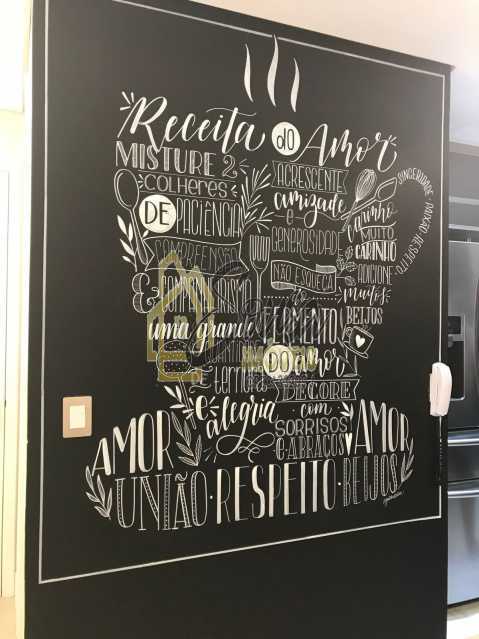 Receita do Amor
MISTURE 2
COLHERES
DE PACIÊNCIA
COMPREENSÃO
&
COMPANHEIRISMO
uma grande
E
ternura
e alegria
ACRESCENTE
amizade
e
GENEROSIDADE
NÃO ESQUEÇA
FERMENTO
DO amor
DECORE
com
SORRISOS
E ABRAÇOS
carinho
MUITO
CARINHO
ADICIONE
muitos
BEIJOS
SINCERIDADE · PAIXÃO · RESPEITO
AMOR
AMOR
UNIÃO · RESPEITO · BEIJOS